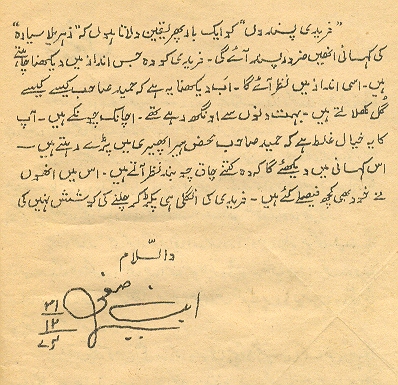 "فریدی پسندوں" کو ایک بار پھر یقین دلاتا ہوں کہ "زہریلا سیارہ"
کی کہانی انھیں ضرور پسند آئے گی۔ فریدی کو وہ جس انداز میں دیکھنا چاہتے
ہیں۔ اسی انداز میں نظر آئے گا۔ اب دیکھنا یہ ہے کہ حمید صاحب کیسے کیسے
گُل کھلاتے ہیں۔ بہت دنوں سے اونگھ رہے تھے۔ اچانک چونکے ہیں۔ آپ
کا یہ خیال غلط ہے کہ حمید صاحب محض ہیرا پھیری میں پڑے رہتے ہیں۔
اس کہانی میں دیکھئے گا کہ وہ کتنے چاق چوبند نظر آتے ہیں۔ اس میں انھوں
نے خود بھی کچھ فیصلے کئے ہیں۔ فریدی کی انگلی ہی پکڑ کر چلنے کی کوشش نہیں کی
والسّلام
ابن صفی
۳۱
۱۲
۷۵